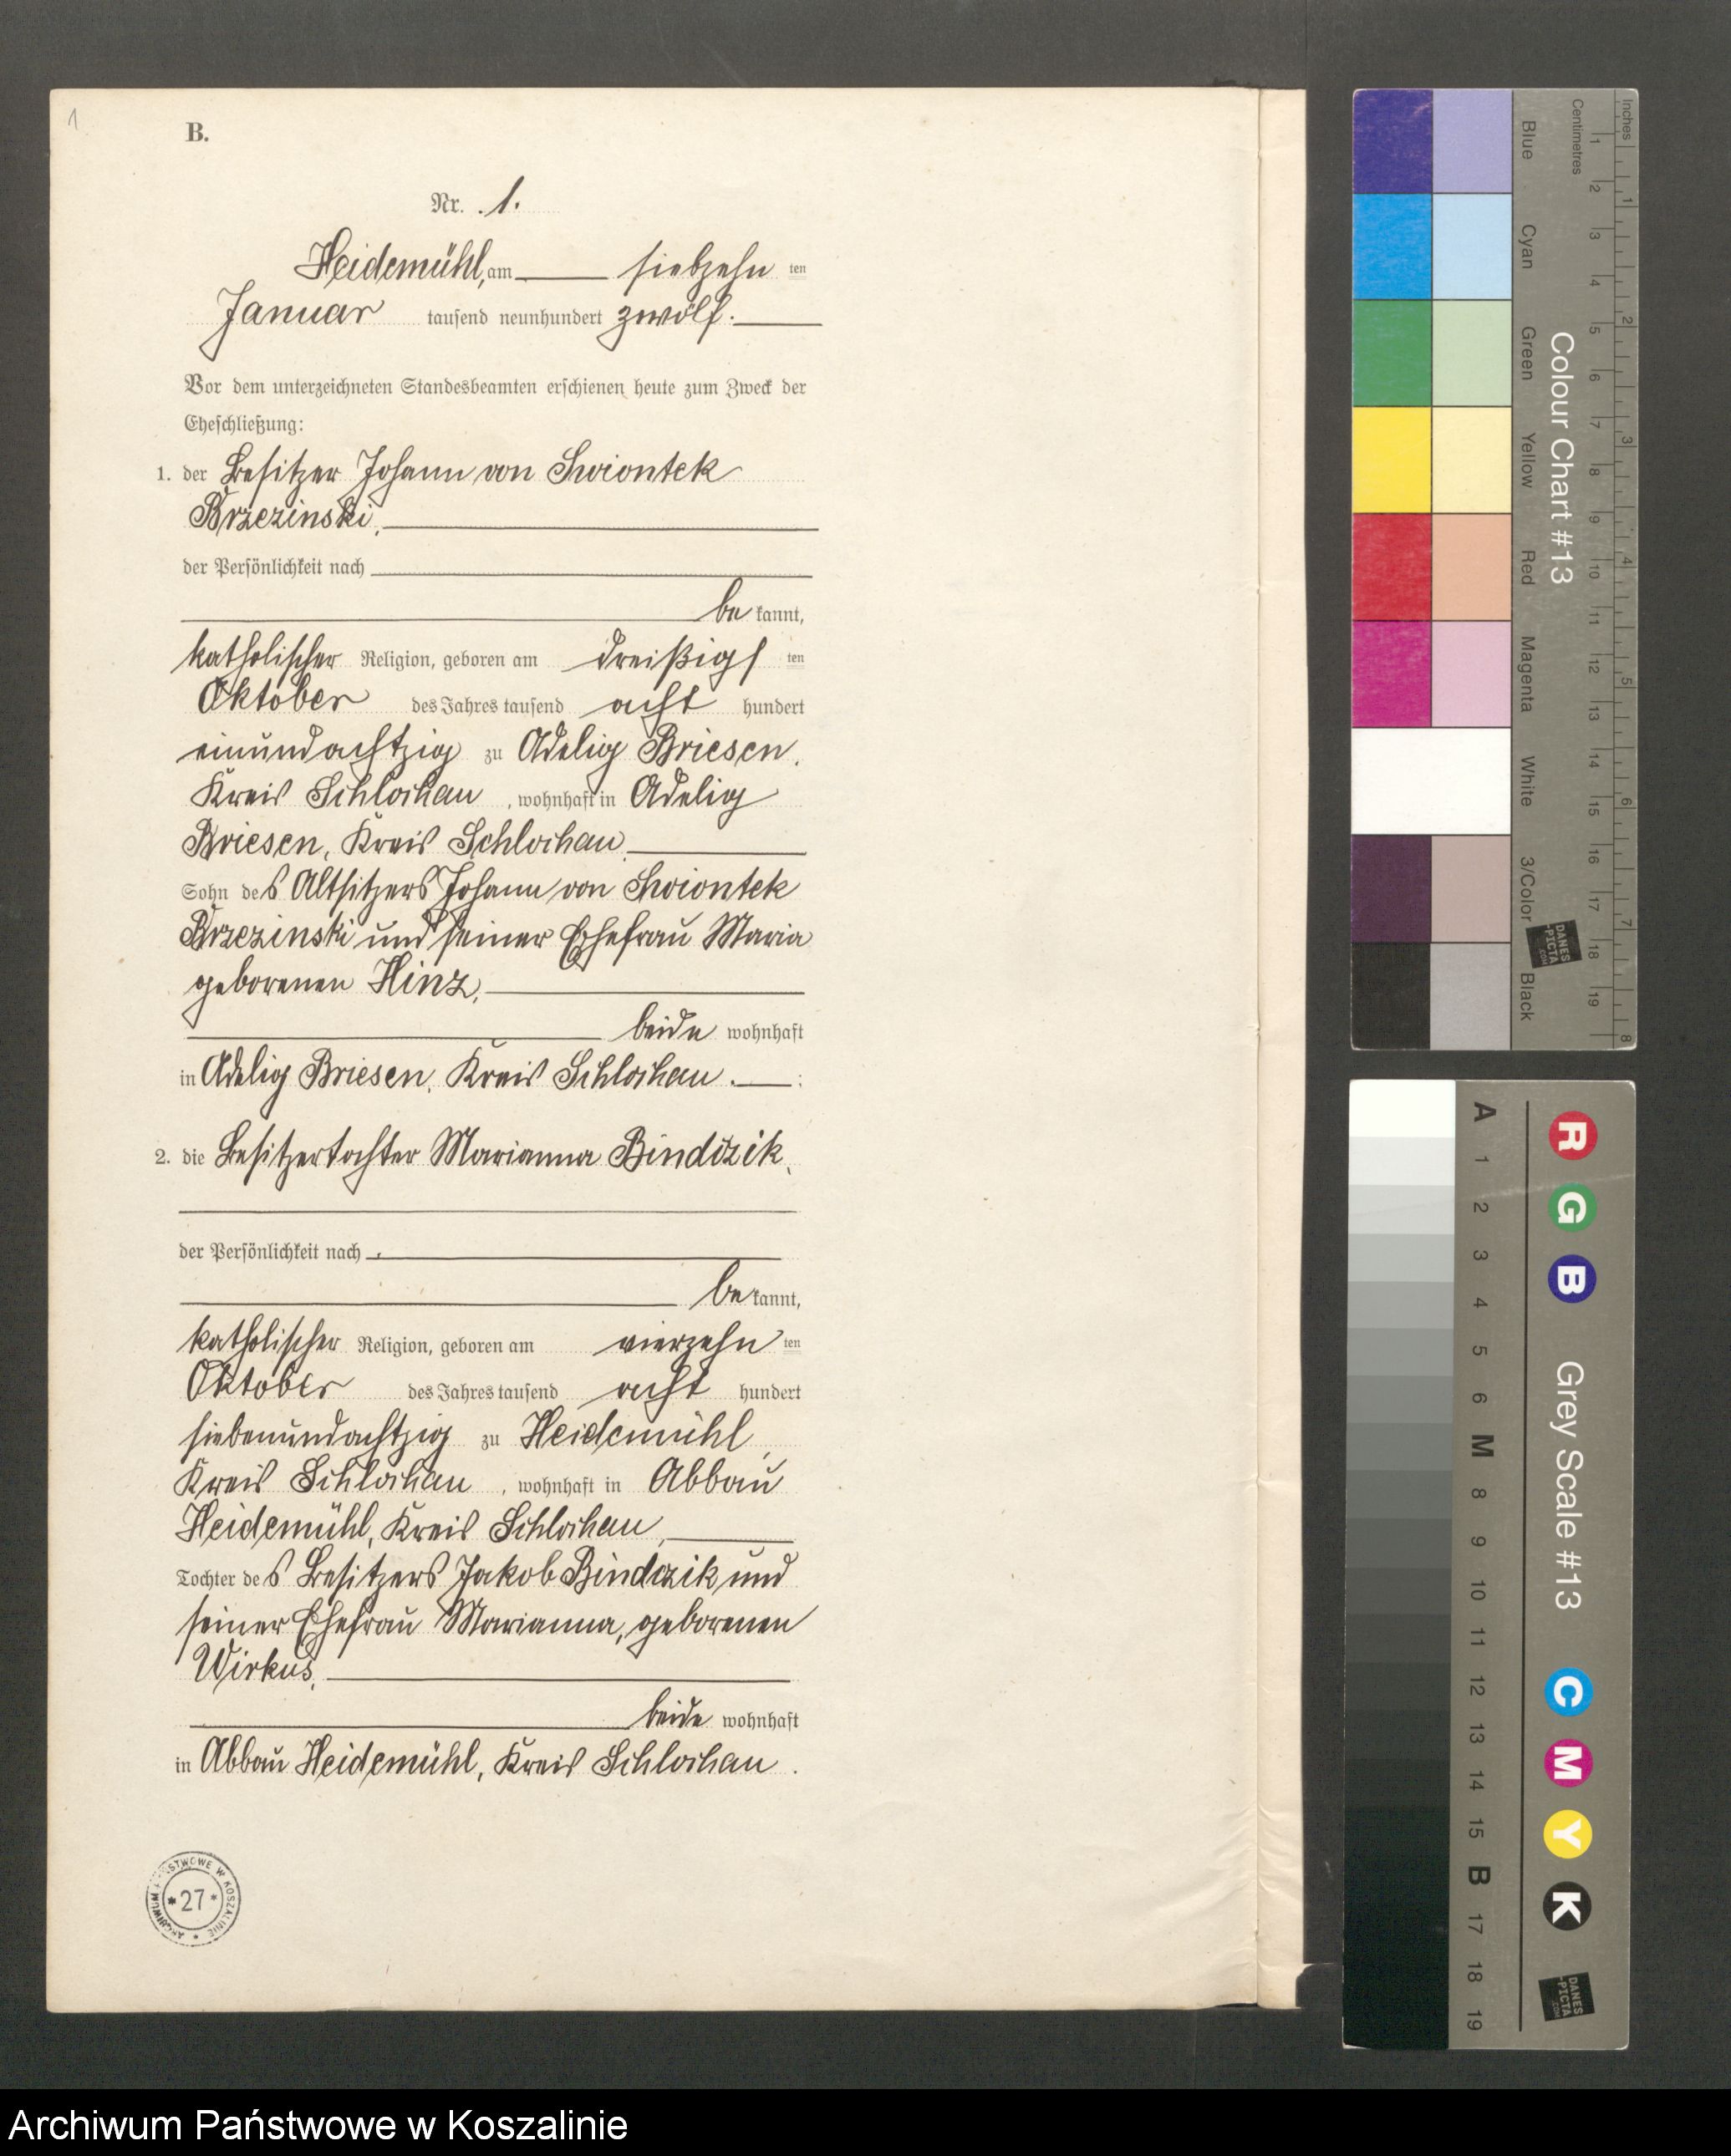 1
B.
Nr. 1.
Heidemühl, am siebzehn ten
Januar tausend neunhundert zwölf.
Vor dem unterzeichneten Standesbeamten erschienen heute zum Zweck der
Eheschließung:
1. der Besitzer Johann von Swiontek
Brzezinski,
der Persönlichkeit nach
be kannt,
katholischer Religion, geboren am dreißigs ten
Oktober des Jahres tausend acht hundert
einundachtzig zu Adelig Briesen,
Kreis Schlochau, wohnhaft in Adelig
Briesen, Kreis Schlochau,
Sohn des Altsitzers Johann von Swiontek
Brzezinski und seiner Ehefrau Maria
geborenen Hinz,
beide wohnhaft
in Adelig Briesen, Kreis Schlochau. ;
2. die Besitzertochter Marianna Bindczik,
der Persönlichkeit nach
be kannt,
katholischer Religion, geboren am vierzehn ten
Oktober des Jahres tausend acht hundert
siebenundachtzig zu Heidemühl,
Kreis Schlochau, wohnhaft in Abbau
Heidemühl, Kreis Schlochau,
Tochter des Besitzers Jakob Bindczik und
seiner Ehefrau Marianna, geborenen
Wirkus,
beide wohnhaft
in Abbau Heidemühl, Kreis Schlochau.
* 27 *
W KOSZALINIE * ARCHIWUM
Inches 1 2 3 4 5 6 7 8
Centimetres 1 2 3 4 5 6 7 8 9 10 11 12 13 14 15 16 17 18 19
Colour Chart #13
Blue Cyan Green Yellow Red Magenta White 3/Color Black
DANES
-PICTA
.COM
A 1 2 3 4 5 6 M 8 9 10 11 12 13 14 15 B 17 18 19
R G B Grey Scale #13 C M Y K
DANES
-PICTA
.COM
Archiwum Państwowe w Koszalinie